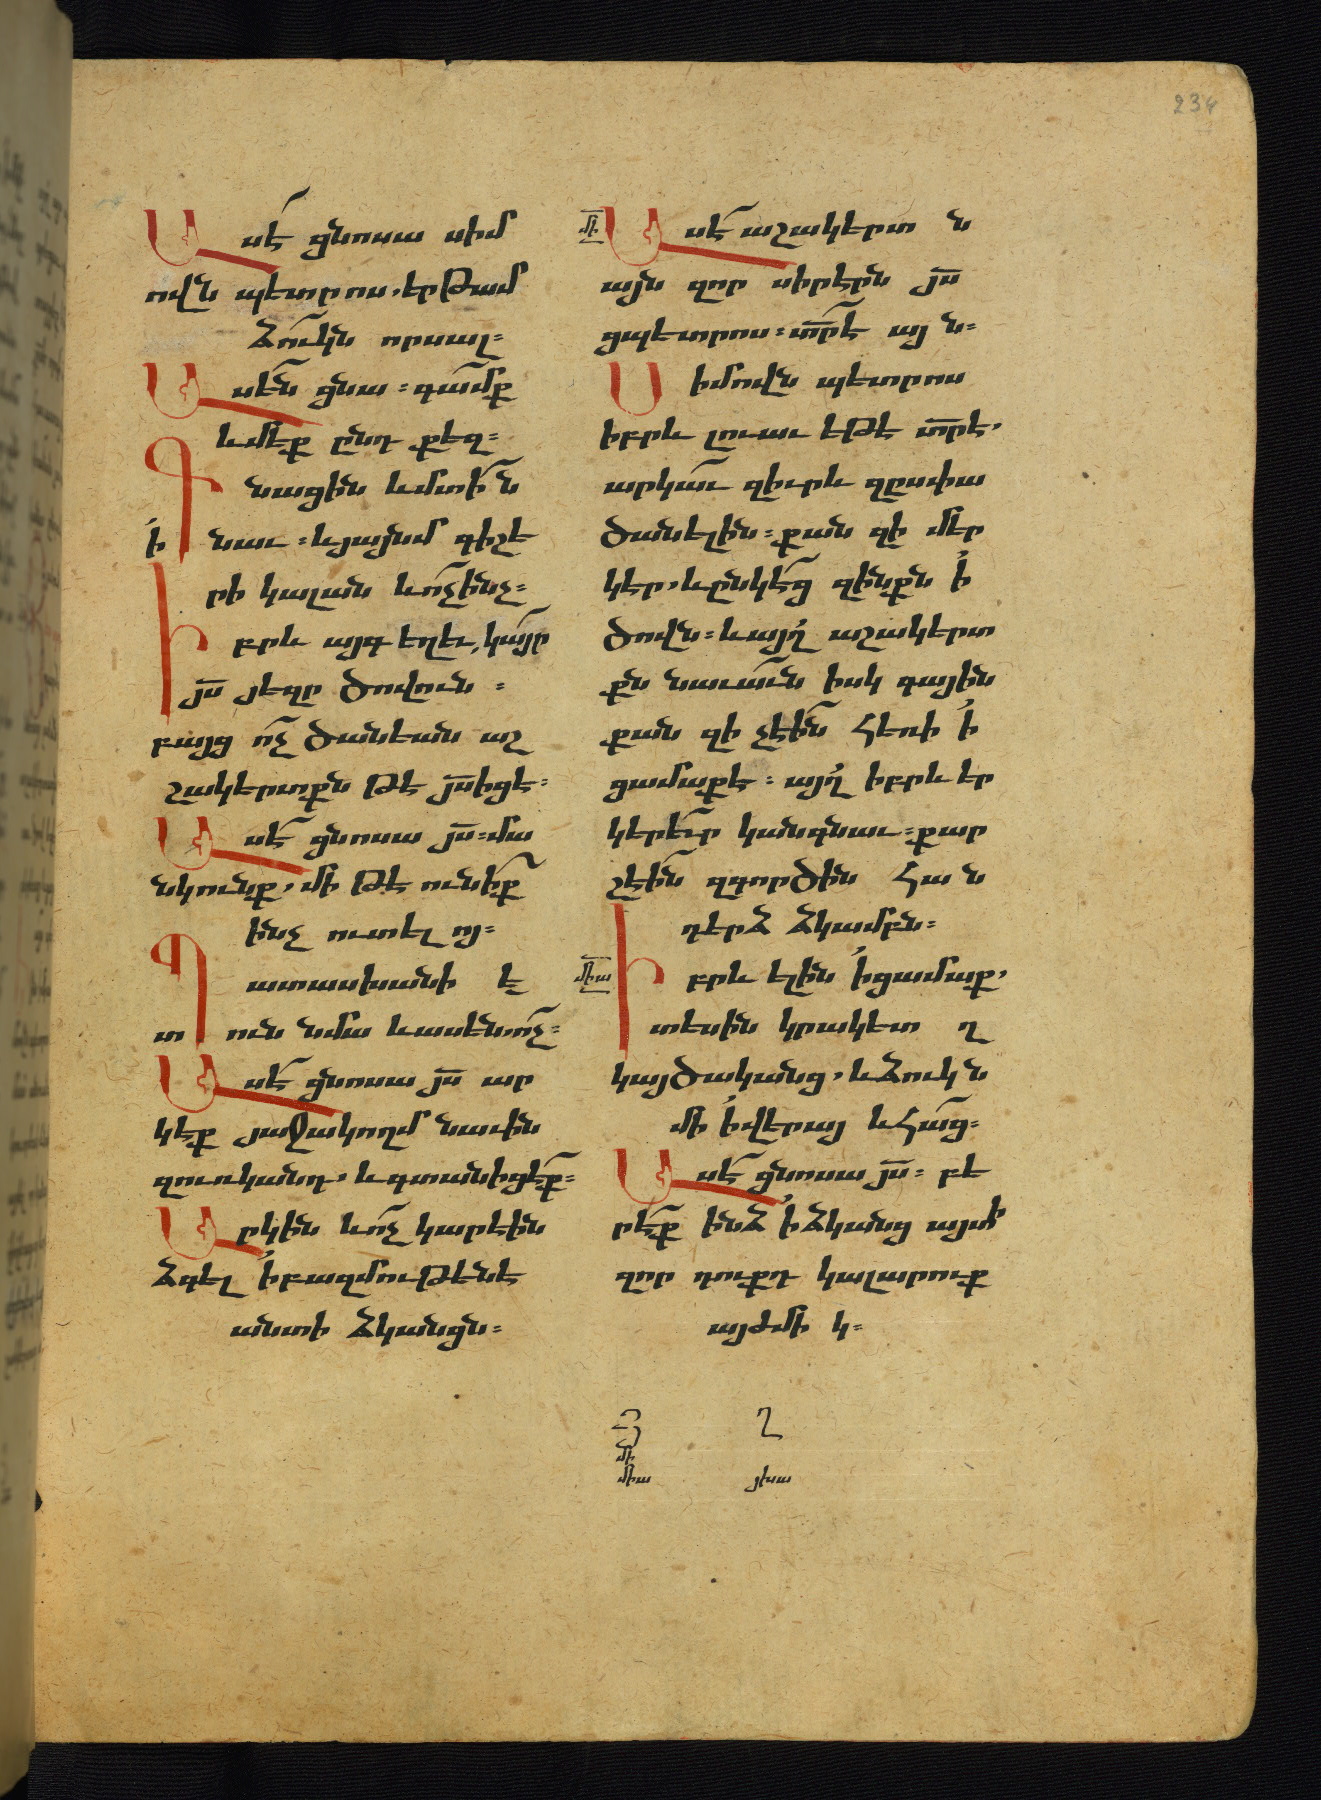 234
Ասէ՜ ցնոսա սիմ
ովն պետրոս, երթամ
ձու՜կն որսալ։
Ասե՜ն ցնա։ գա՜մք
և մեք ընդ քեզ։
Գնացին և մտի՜ն
ի՛ նաւ։ և յայնմ գիշե
րի կալան և ո՜չինչ։
Իբրև այգ եղև, կա՜յր
յս̅ յեզր ծովուն։
բայց ո՜չ ծանեան աշ
շակերտքն թէ յս̅ իցէ։
Ասէ՜ ցնոսա յս̅։ մա
նկունք, մի թէ ունի՜ք
ինչ ուտել ոյ։
Պատասխանի ե
տուն նմա և ասեն. ո՜չ։
Ասէ՜ ցնոսա յս̅ ար
կեք յաջակողմ նաւին
զուռկանդ, և գտանիցէ՜ք։
Արկին և ո՜չ կարէին
ձգել ի՛ բազմութենէ
անտի ձկանցն։
մի̅
Ասէ՜ աշակերտ ն
այն զոր սիրէրն յս̅
ցպետրոս։ տ̅րէ̅ այ ն։
Սիմովն պետրոս
իբրև լուաւ եթէ տ̅րէ,
արկա՜ւ զիւրև զըսփա
ծանելին։ քան զի մեր
կեր, և ընկէ՜ց զինքն ի՛
ծովն։ և այղ̅ աշակերտ
քն նաւա՜ւն իսկ գային
քան զի չէի՜ն հեռի ի՛
ցամաքէ։ այղ̅ իբրև եր
կերե՜ւր կանգնաւ։ քար
շէի՜ն զգործին հա ն
դերձ ձկամբն։
մխա̅
Իբրև ելին ի՛ ցամաք,
տեսին կրակետ ղ
կայծականց, և ձուկ ն
մի ի՛ վերայ և հա՜ց։
Ասէ՜ ցնոսա յս̅։ բե
րէ՜ք ինձ ի՛ ձկանց այտի
զոր դուքդ կալարուք
այժմի կ։
մի
մխա յխա